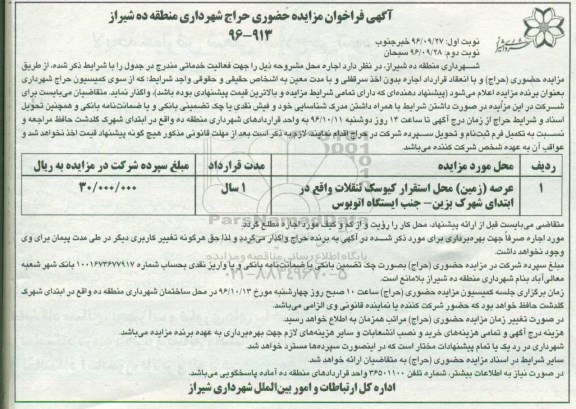 آگهی فراخوان مزایده حضوری حراج شهرداری منطقه ده شیراز
۹۶-۹۱۳
نوبت اول: ۹۶/۰۹/۲۷ خبرجنوب
نوبت دوم: ۹۶/۰۹/۲۸ سبحان
شهرداری منطقه ده شیراز، در نظر دارد اجاره محل مشروحه ذیل را جهت فعالیت خدماتی مندرج در جدول را با شرایط ذکر شده، از طریق
مزایده حضوری (حراج) و با انعقاد قرارداد اجاره بدون اخذ سرقفلی و با مدت معین به اشخاص حقیقی و حقوقی واجد شرایط؛ که از سوی کمیسیون حراج شهرداری
بعنوان برنده مزایده اعلام می‌شود (پیشنهاد دهنده‌ای که دارای تمامی شرایط مزایده و بالاترین قیمت پیشنهادی بوده باشد)، واگذار نماید. متقاضیان می‌بایست برای
شرکت در این مزایده در صورت داشتن شرایط با همراه داشتن مدرک شناسایی خود و فیش نقدی یا چک تضمینی بانکی و یا ضمانت‌نامه بانکی و همچنین تحویل
اسناد و شرایط حراج از زمان درج آگهی تا ساعت ۱۴ روز دوشنبه ۹۶/۱۰/۱۱ به واحد قراردادهای شهرداری منطقه ده واقع در ابتدای شهرک گلدشت حافظ مراجعه و
نسبت به تکمیل فرم ثبت‌نام و تحویل سپرده شرکت در حراج اقدام نمایند؛ لازم به ذکر است بعد از مهلت قانونی مذکور هیچ گونه پیشنهاد قیمت اخذ نخواهد شد و
عواقب آن به عهده شخص شرکت کننده می‌باشد.
ردیف محل مورد مزایده مدت قرارداد مبلغ سپرده شرکت در مزایده به ریال
۱ عرصه (زمین) محل استقرار کیوسک تنقلات واقع در ۱ سال ۳۰/۰۰۰/۰۰۰
ابتدای شهرک بزین– جنب ایستگاه اتوبوس
متقاضی می‌بایست قبل از ارائه پیشنهاد، محل کار را رؤیت و از کم و کیف مورد اجاره مطلع گردد.
مورد اجاره صرفاً جهت بهره‌برداری برای مورد ذکر شده در آگهی به برنده حراج واگذار می‌گردد و لذا حق هرگونه تغییر کاربری دیگر در طی مدت پیمان برای وی
وجود نخواهد داشت.
مبلغ سپرده شرکت در مزایده حضوری (حراج) بصورت چک تضمین بانکی و ضمانت‌نامه بانکی و یا واریز نقدی بحساب شماره ۱۰۰۱۶۷۳۶۷۷۹۱۷ بانک شهر شعبه
معالی‌آباد بنام شهرداری منطقه ده شیراز بلامانع است.
زمان برگزاری جلسه کمیسیون مزایده حضوری (حراج) ساعت ۱۰ صبح روز چهارشنبه مورخ ۹۶/۱۰/۱۳ در محل ساختمان شهرداری منطقه ده واقع در ابتدای شهرک
گلدشت حافظ خواهد بود که حضور شرکت کننده یا نماینده قانونی وی الزامی می‌باشد.
در صورت تغییر زمان مزایده حضوری (حراج) مراتب همزمان به اطلاع خواهد رسید.
هزینه درج آگهی و تمامی هزینه‌های خرید و نصب انشعابات و سایر هزینه‌های لازم جهت بهره‌برداری به عهده برنده مزایده می‌باشد.
شهرداری در رد یک یا تمام پیشنهادات مختار است که در اینصورت سپرده‌ها مسترد خواهد شد.
سایر شرایط در اسناد مزایده حضوری (حراج) به متقاضیان ارائه خواهد شد.
در صورت نیاز به اطلاعات بیشتر، شماره تلفن ۳۶۵۰۱۱۰۰ واحد قراردادهای منطقه ده آماده پاسخگویی می‌باشد.
اداره کل ارتباطات و امور بین‌الملل شهرداری شیراز